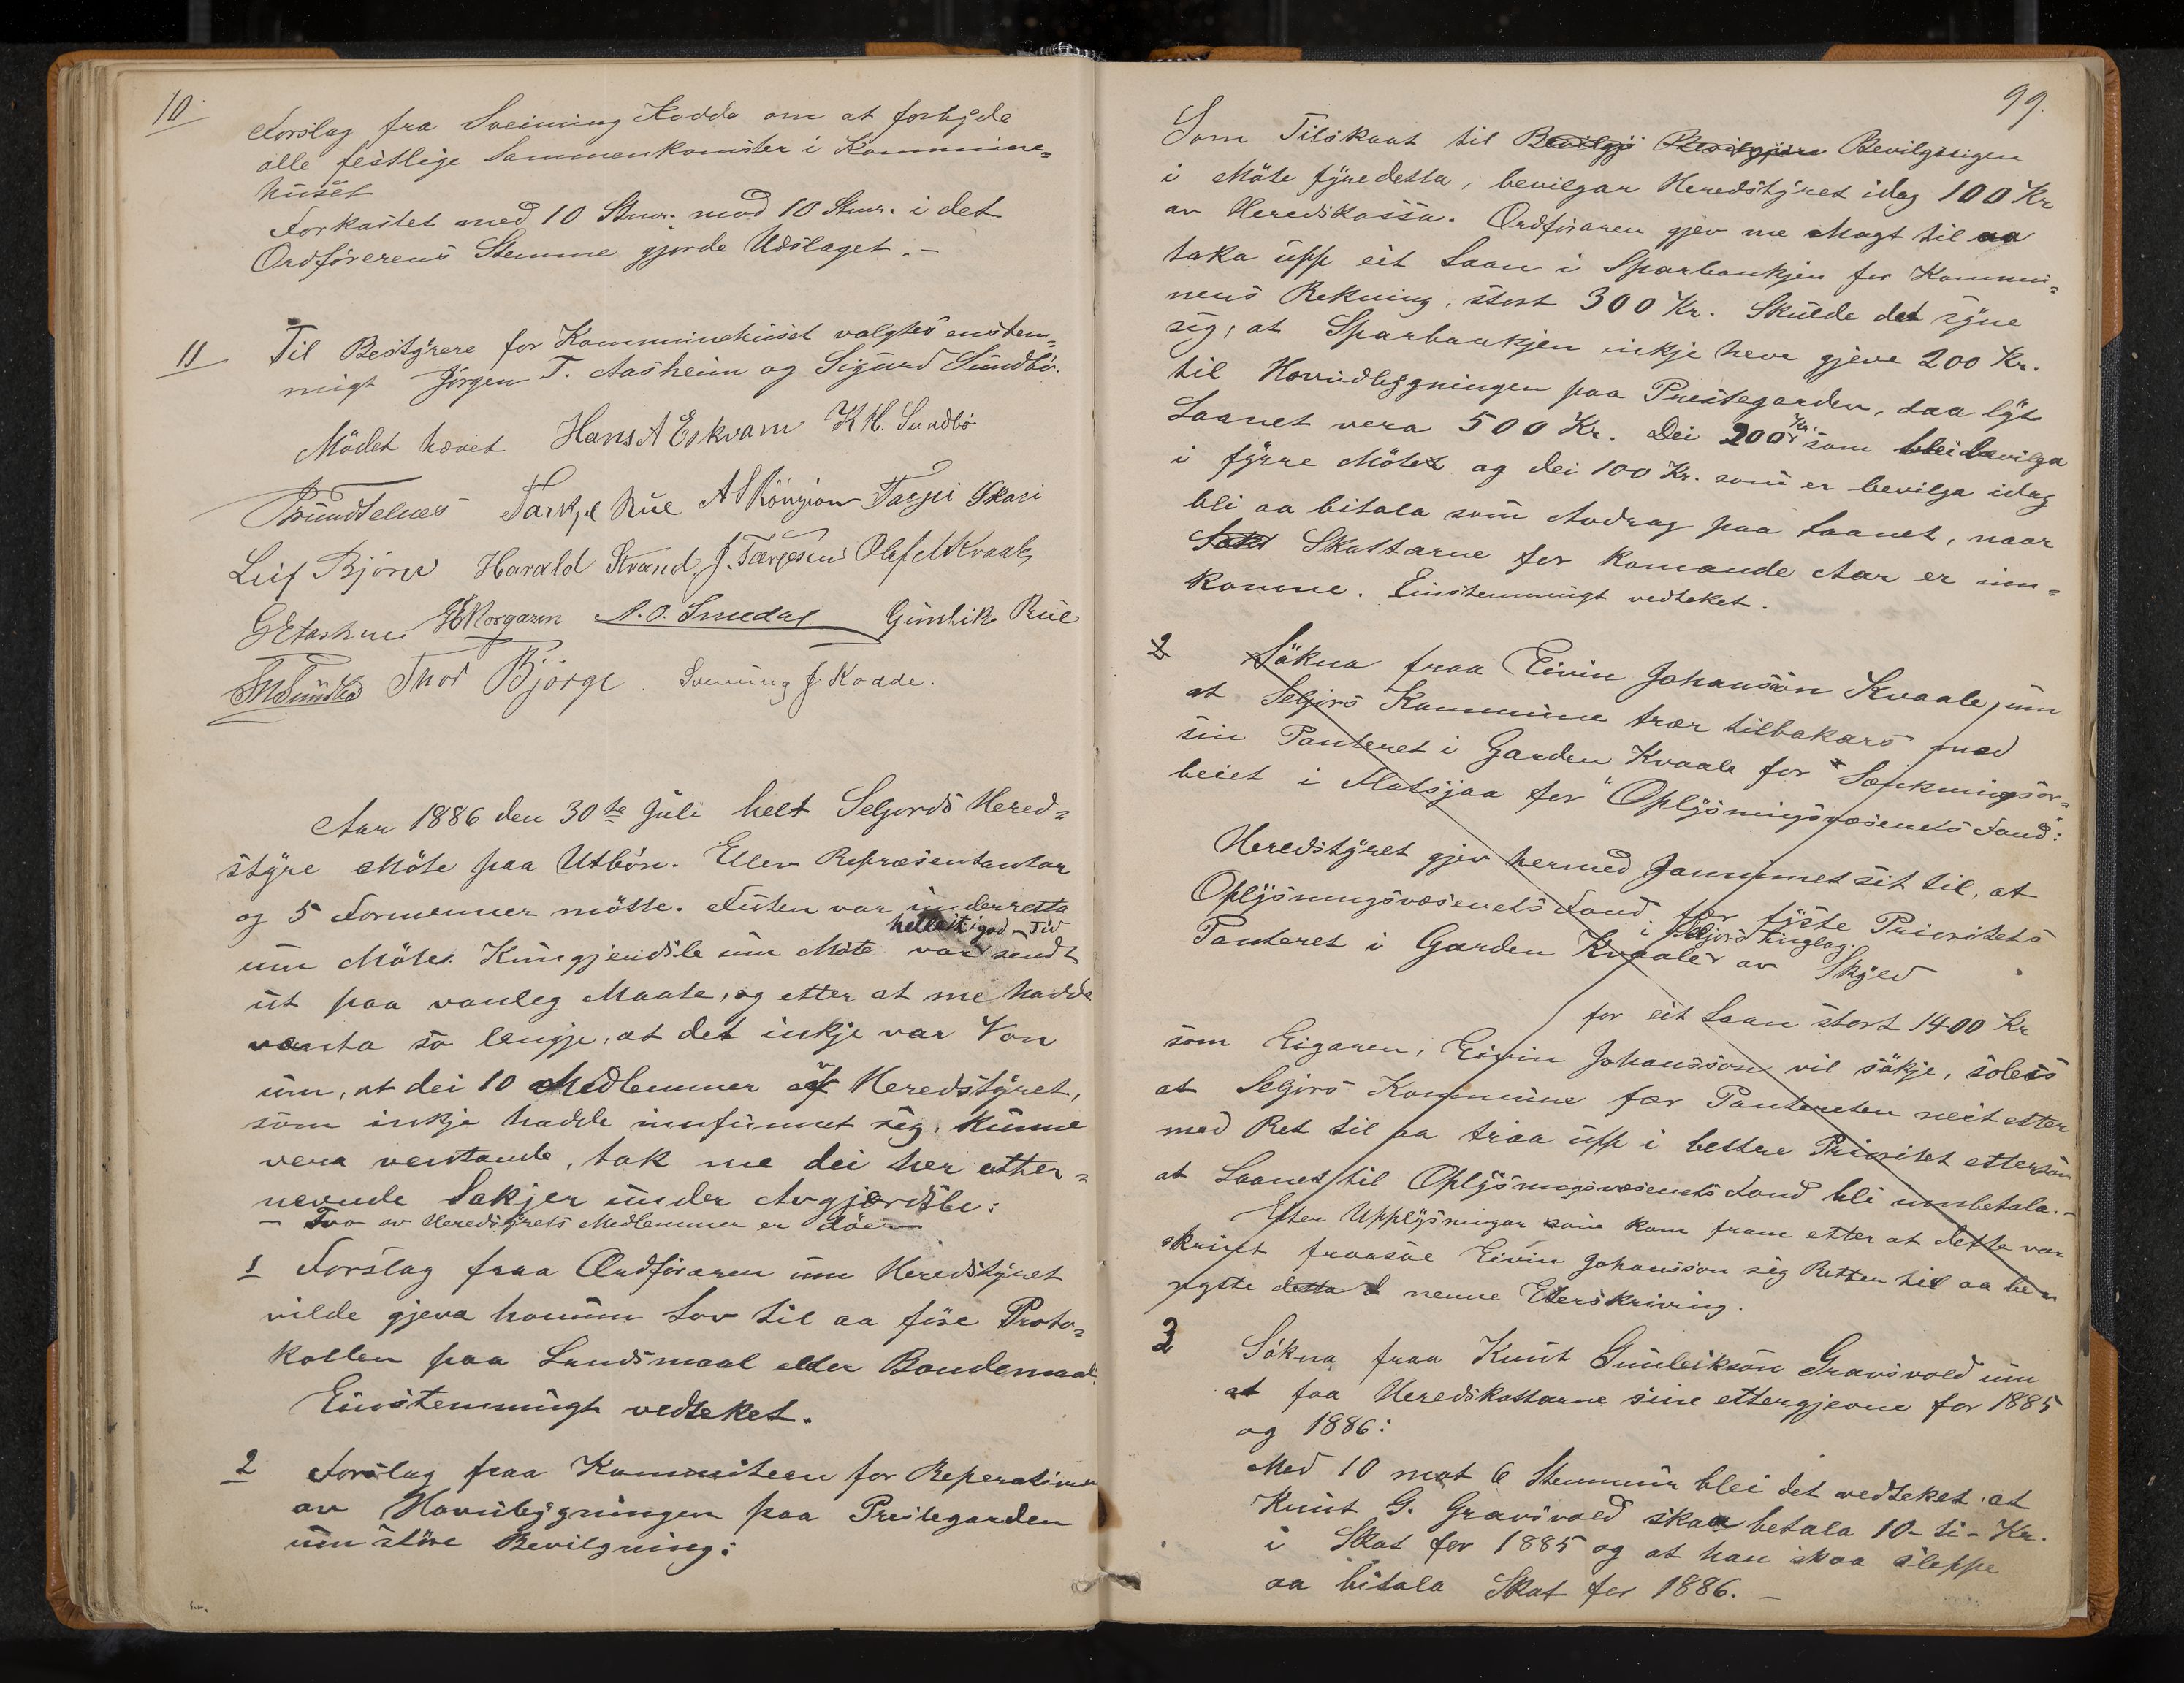 10.
Forslag fra Sveinung Kodde om at forbyde
alle festlige Sammenkomster i Kommune-
huset
Forkastet med 10 Stmr. mod 10 Stmr. i det
Ordförerens Stemme gjorde Udslaget. –
11 Til Bestyrere for Kommunehuset valgtes enstem-
migt Jörgen T. Aasheim og Sigurd Sundbö.
Mödet hævet Hans A Eskvam K H. Sundbö
Tarkjel Rue Targei Skori
Leif Björn Harald Strand Olaf Kvaale
A. O. Smedal Gunleik Rue
Thor Björge Sveinung J Kodde.
Aar 1886 den 30te Juli helt Seljords Hered-
styre Möte paa Utböen. Ellev Repræsentantar
og 5 Formenner mötte. Futen var underretta
helleit i god Tid
um Möte. Kungjerdsle um Möte var sendt
ut paa vanleg Maate, og etter at me hadde
vænta so lengje, at det inkje var Von
um, at dei 10 Medlemmer af Heredstyret,
som inkje hadde innfunnet sig, kunne
vera ventande, tok me dei her etter-
nevnde Sakjer under Avgjærdsle:
– Tvo av Heredstyrets Medlemmer er döer –
1 Forslag fraa Ordföraren um Heredstyret
vilde gjeva honum Lov til aa före Proto-
kollen paa Landsmaal elder Bondemaal.
Einstemmugt vedteket.
2 Forslag fraa Kommiteen for Reperation
av Hovubygningen paa Prestegarden
um störe Bevilgning:
99.
Som Tilskaat til Bevilgji Bevilgjinn Bevilgnigen
i Möte fyre detta, bevilgar Heredstyret idag 100 Kr
av Heredskassa. Ordföraren gjev me Magt til aa
taka upp eit Laan i Sparbankjen for Kommu-
nens Rekning, stort 300 Kr. Skulde det syne
sig, at Sparbankjen inkje heve gjeve 200 Kr.
til Hovudbygningen paa Prestegarden, daa lyt
Laanet vera 500 Kr. Dei 200 Kr. som blei bevilga
i fyrre Mötet og dei 100 Kr. som er bevilga idag
bli aa bitala som Avdrag paa Laanet, naar
Skattarne for komande Aar er inn-
komne. Einstemmugt vedteket.
2 Sökna fraa Eivin Johansson Kvaale, um
at Seljors Kommune trær tilbakars med
sin Panteret i Garden Kvaale for Sænkningsar-
beiet i Flatsjaa for "Oplysningsvæsenets Fond":
Heredstyret gjev hermed Jammet sit til, at
Oplysningsvæsenets Fond fær fyste Prioritets
i Seljord Tinglag.
Panteret i Garden Kvaale av Skyld
for eit Laan stort 1400 Kr
som Eigaren, Eivin Johansson vil sökje, soleis
at Seljors Kommune fær Panteretten nest etter
med Ret til aa triaa upp i bettre Prioritet ettersom
at Laanet til Oplysningsvæsenets Fond bli nonbetala. –
Efter Upplysningar som kom fram etter at dette var
skrivet fraasae Eivin Johansson sig Retten til aa be-
nytte detta nenne Eterskriving.
3 Sökna fraa Knut Gunleikson Gravsvold um
at faa Heredskattarne sine ettergjevne for 1885
og 1886:
Med 10 mot 6 Stemmur blei det vedteket at
Knut G. Gravsvold skaa betala 10 - ti - Kr.
i Skat for 1885 og at han skaa sleppe
aa bitala Skat for 1886. –